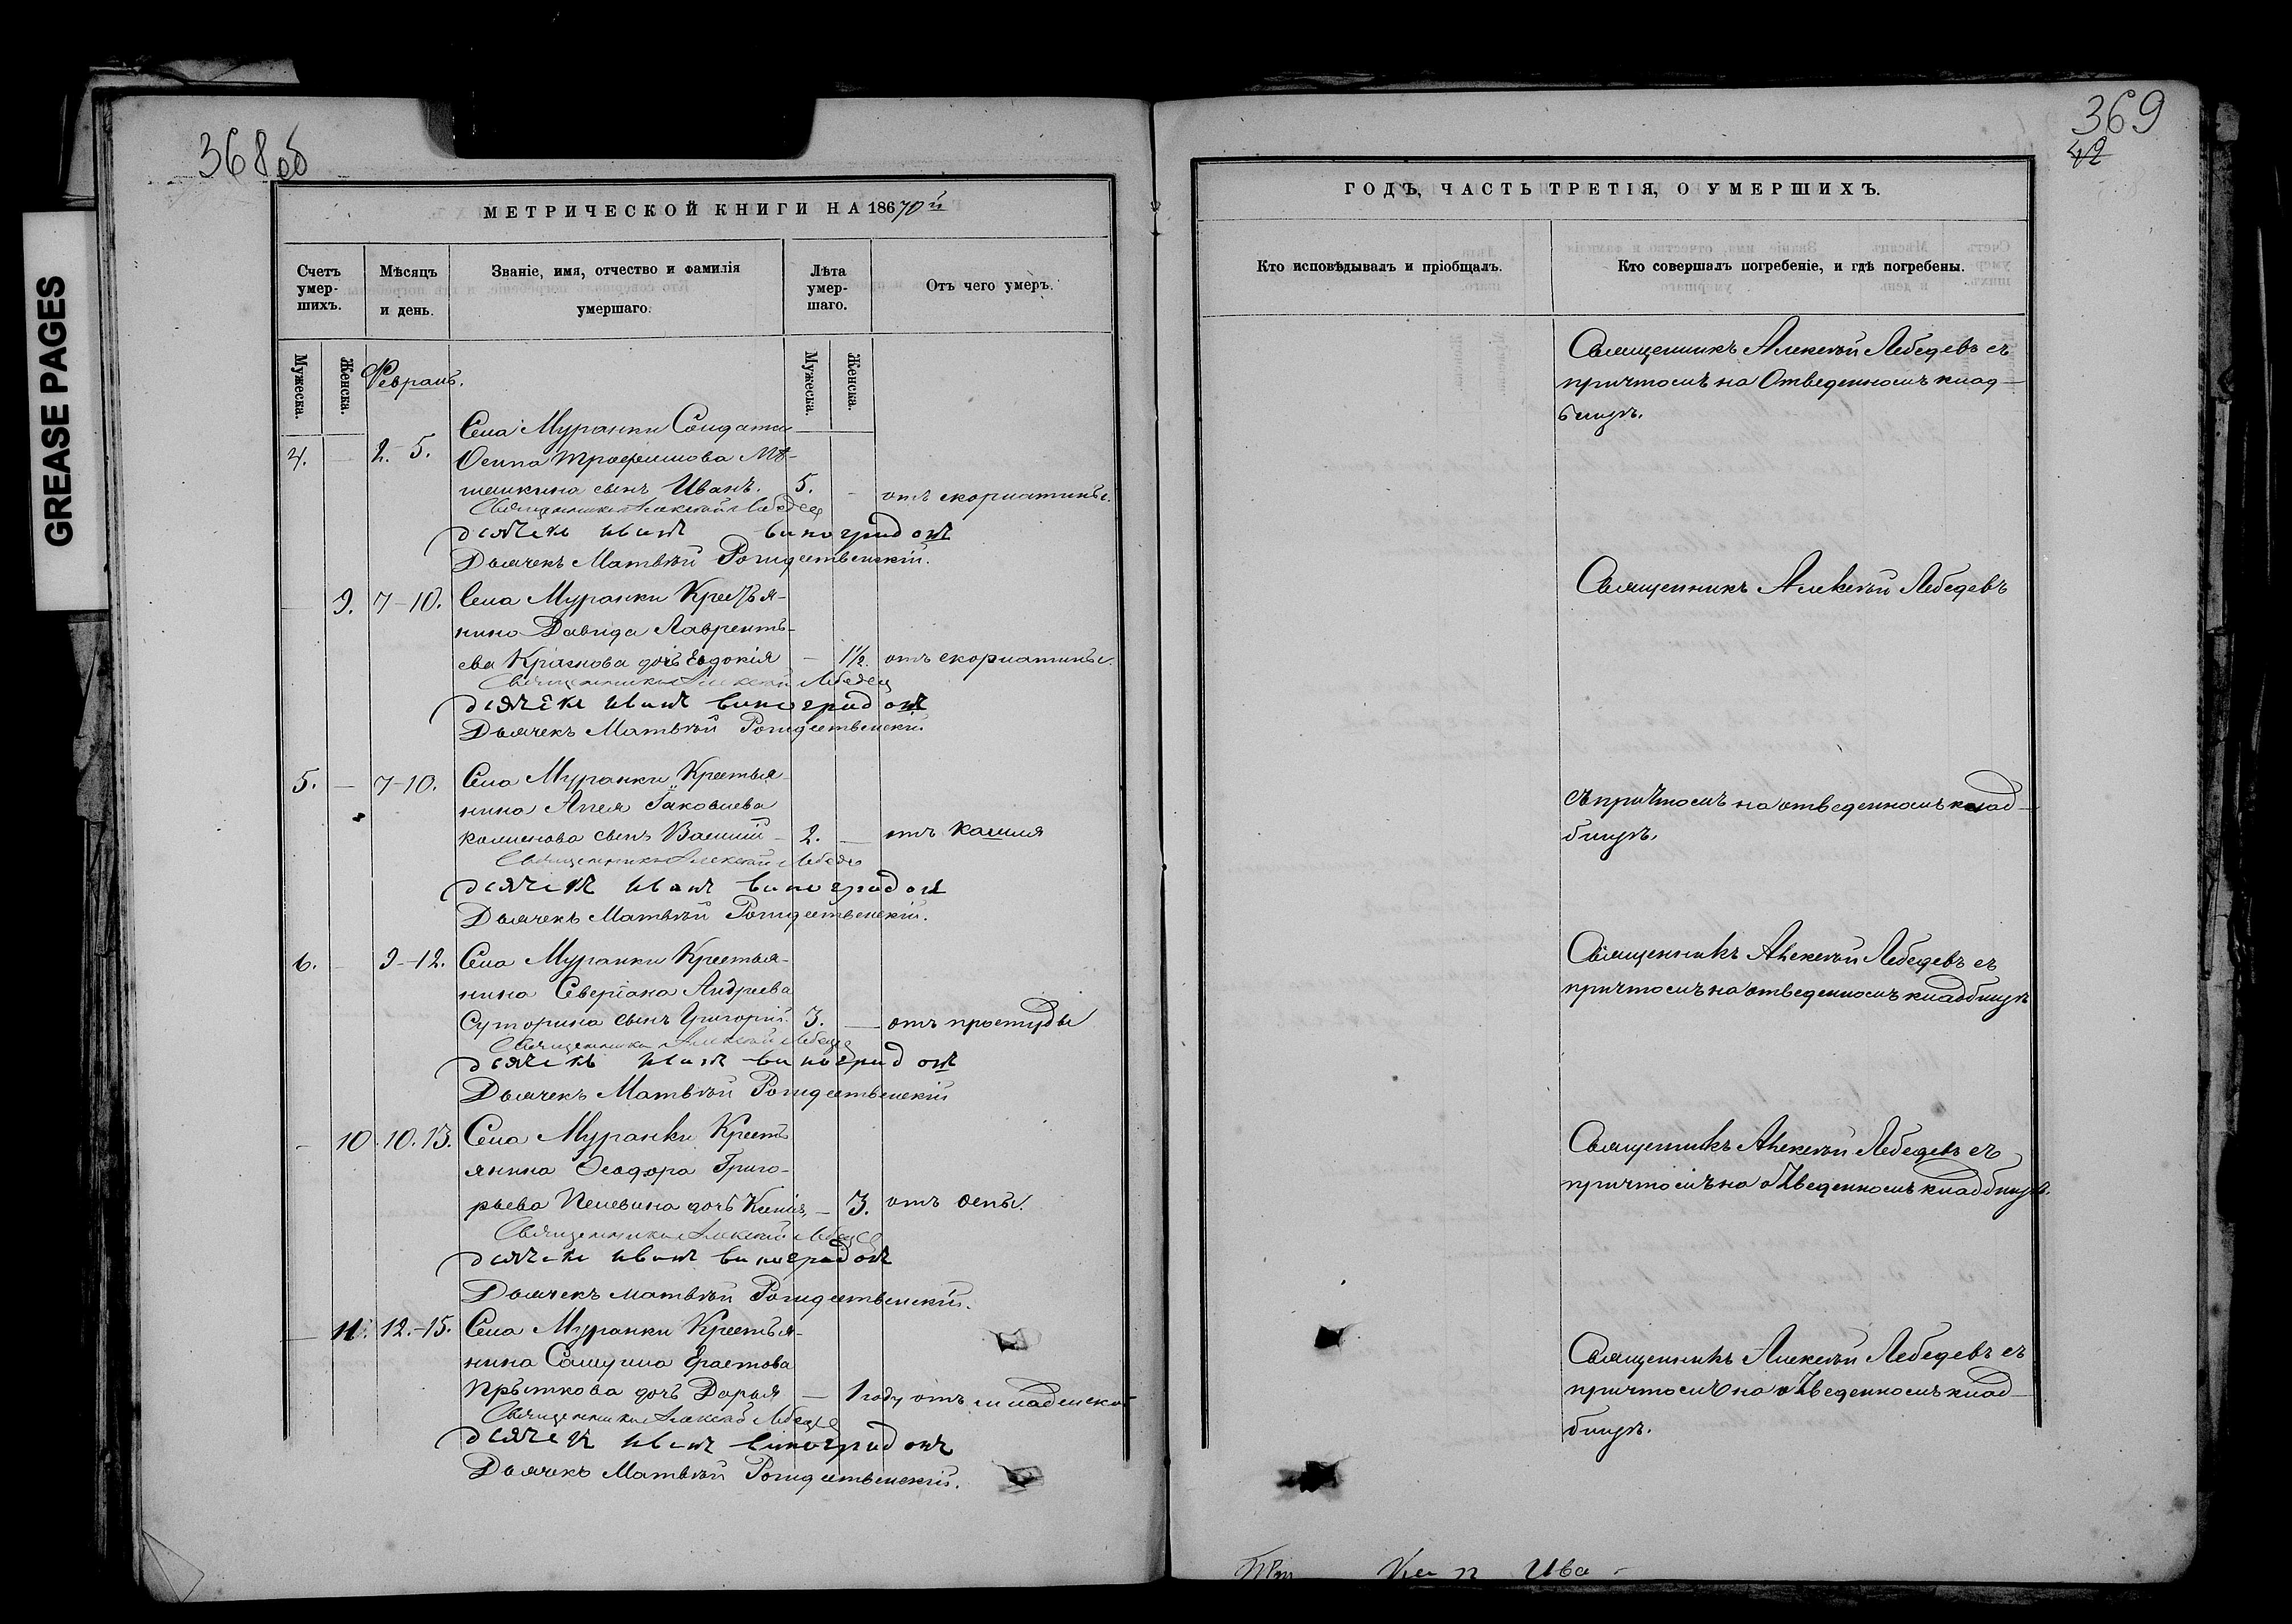 368 об
369
42
GREASE PAGES
МЕТРИЧЕСКОЙ КНИГИ НА 18670й
Счетъ умер- шихъ.
Мѣсяцъ и день.
Званіе, имя, отчество и фамилія умершаго.
Лѣта умер- шаго.
Отъ чего умеръ.
Мужеска.
Женска.
Мужеска.
Женска.
Февраль.
Села Муранки Солдата
4. — 2.-5. Осипа Трофимова Мѣ-
шалкина сынъ Иванъ. 5. — отъ скорлатины.
Священникъ Алексѣй Лебедев
дьячекъ иванъ виноградовъ
Дьячекъ Матвѣй Рождественскій.
— 9. 7-10. Села Муранки Крестья-
нина Давида Лаврентъ-
ева Краснова дочь Евдокія — 1½. отъ скорлатины.
Священникъ Алексѣй Лебедев
дьячекъ иванъ виноградовъ
Дьячекъ Матвѣй Рождественскій
5. — 7-10. Села Муранки Крестья-
нина Іаковлева
сынъ Василій — 2. — отъ кашля
Священникъ Алексѣй Лебедев
дьячекъ иванъ виноградовъ
Дьячекъ Матвѣй Рождественскій.
6. — 9-12. Села Муранки Крестья-
нина Северіана Андреева
Суторина сынъ Григорій. 3. — отъ простуды
Священникъ Алексѣй Лебедев
дьячекъ иванъ виноградовъ
Дьячекъ Матвѣй Рождественскій
— 10. 10.13. Села Муранки Кресть
янина Ѳеодора Григо-
рьева Пелевина дочь Ксенія, — 3. отъ оспы.
Священникъ Алексѣй Лебедев
дьячекъ иванъ виноградовъ
Дьячекъ Матвѣй Рождественскій.
— 11. 12.-15. Села Муранки Крестья-
нина Самуила Ерастова
Прыткова дочь Дарья — 1 году отъ младенской
Священникъ Алексѣй Лебедев
дьячекъ иванъ виноградовъ
Дьячекъ Матвѣй Рождественскій.
ГОДЪ, ЧАСТЬ ТРЕТІЯ, О УМЕРШИХЪ.
Кто исповѣдывалъ и пріобщалъ.
Кто совершалъ погребеніе, и гдѣ погребены.
Священникъ Алексѣй Лебедевъ съ
причтомъ на Отведенномъ клад-
бищѣ.
Священникъ Алексѣй Лебедевъ
съ причтомъ на отведенномъ клад-
бищѣ.
Священникъ Алексѣй Лебедевъ съ
причтомъ на отведенномъ кладбищѣ
Священникъ Алексѣй Лебедевъ съ
причтомъ на отведенномъ кладбищѣ.
Священникъ Алексѣй Лебедевъ съ
причтомъ на отведенномъ клад-
бищѣ.